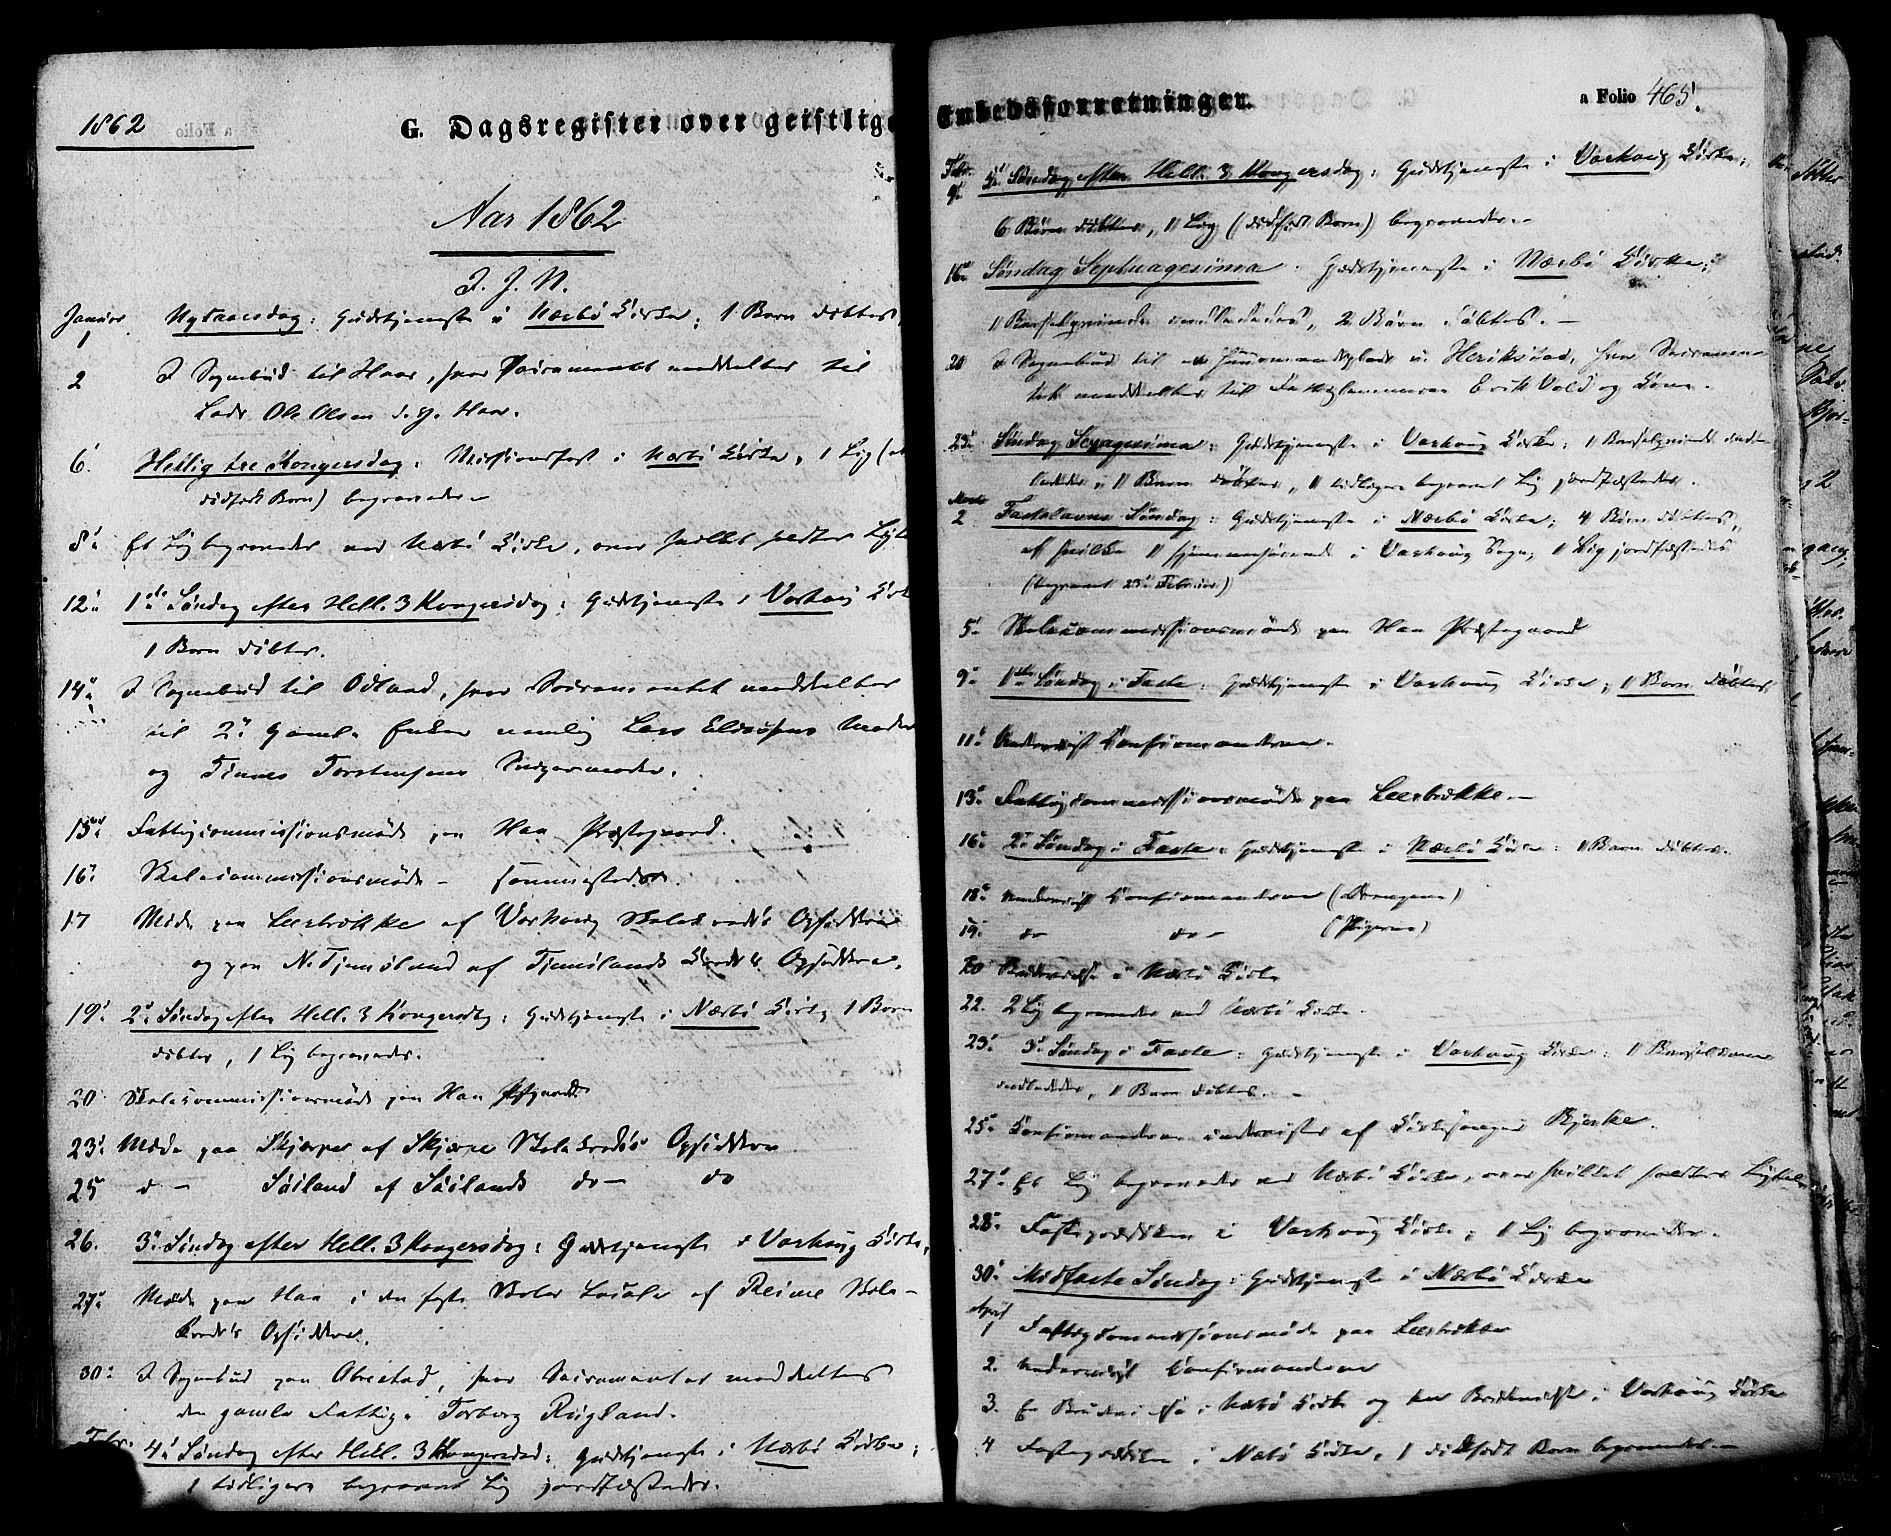 1862
G. Dagsregister over geistlige
Aar 1862
I. J. N.
Januar
1 Nytaarsdag: Gudstjeneste i Nærbø Kirke; 1 Barn døbtes.
2 I Sognebud til Haar, hvor Sacramentet meddeltes til
Ole Olsen d. y. Haar.
6. Hellig tre Kongersdag: Missionsfest i Nærbø Kirke, 1 Lig (et
dødfødt Barn) begravedes.
8. Et Lig begravedes ved Nærbø Kirke, over hvilket holdtes Ligtale
12. 1ste Søndag efter Hell. 3 Kongersdag: Gudstjeneste i Varhoug Kirke
1 Barn døbtes.
14. I Sognebud til Odland, hvor Sacramentet meddeltes
til 2 gamle Enker nemlig Lars Moder
og Torstensens Svigermoder.
15. Fattigcommissionsmøde paa Haa Præstegaard.
16. Skolecommissionsmøde – sammesteds.
17 Møde paa Leerbrække af Varhoug Skolekreds's Opsiddere
og paa N. Tjemsland af Tjemslands Kreds's Opsiddere.
19. 2. Søndag efter Hell. 3 Kongersdag: Gudstjeneste i Nærbø Kirke, 1 Barn
døbtes, 1 Lig begravedes.
20 Skolecommissionsmøde paa Haa Præstegaard.
23. Møde paa Skjerpe af Skjerpe Skolekreds's Opsiddere
25 do – Søiland af Søilands do – do
26. 3. Søndag efter Hell. 3 Kongersdag: Gudstjeneste i Varhoug Kirke,
27. Møde paa Haa i den faste Skoles Locale af Reime Skole-
kreds's Opsiddere.
30. I Sognebud paa Obrestad, hvor Sacramentet meddeltes
den gamle Fattige Torberg Rugland.
Febr. 4. Søndag efter Hell. 3 Kongersdag: Gudstjeneste i Nærbø Kirke;
1 tidligere begravet Lig jordfæstedes.
Embedsforretninger.
a Folio 465.
Febr.
9. 5. Søndag efter Hell. 3 Kongersdag: Gudstjeneste i Varhoug Kirke;
6 Børn døbtes, 1 Lig (dødfødt Barn) begravedes.
16. Søndag Septuagesima: Gudstjeneste i Nærbø Kirke;
1 Barselqvinde indlededes, 2 Børn døbtes. –
20 I Sognebud til en Huusmandsplads u. Herikstad, hvor Sacramen-
tet meddeltes til Fattiglemmerne Erik Vold og Kone.
23. Søndag Sexagesima: Gudstjeneste i Varhoug Kirke; 1 Barselqvinde ind-
lededes, 1 Barn døbtes, 1 tidligere begravet Lig jordfæstedes.
Marts
2 Fastelavns Søndag: Gudstjeneste i Nærbø Kirke; 4 Børn døbtes,
af hvilke 1 hjemmehørende i Varhoug Sogn, 1 Lig jordfæstedes
(begravet 23. Februar)
5. Skolecommissionsmøde paa Haa Præstegaard
9. 1ste Søndag i Faste: Gudstjeneste i Varhoug Kirke; 1 Barn døbtes
11. Underviist Confirmanderne.
13. Fattigcommissionsmøde paa Leerbrække. –
16. 2. Søndag i Faste: Gudstjeneste i Nærbø Kirke: 1 Barn døbtes.
18. Underviist Confirmanderne (Drengene)
19. do do – (Pigerne)
20 Brudevielse i Nærbø Kirke
22. 2 Lig begravedes ved Nærbø Kirke.
23. 3. Søndag i Faste: Gudstjeneste i Varhoug Kirke: 1 Barselkone
indlededes, 1 Barn døbtes. –
25. Confirmanderne undervistes af Kirkesanger Bjerke.
27. Et Lig begravedes ved Nærbø Kirke, over hvilket holdtes Ligtale
28. Fasteprædiken i Varhoug Kirke; 1 Lig begravedes.
30. Midfaste Søndag: Gudstjeneste i Nærbø Kirke
April
1 Fattigcommissionsmøde paa Leerbrække
2. Underviist Confirmanderne
3. En Brudevielse i Nærbø Kirke og een Brudevielse i Varhoug Kirke
4 Fasteprædiken i Nærbø Kirke, 1 dødfødt Barn begravedes. –